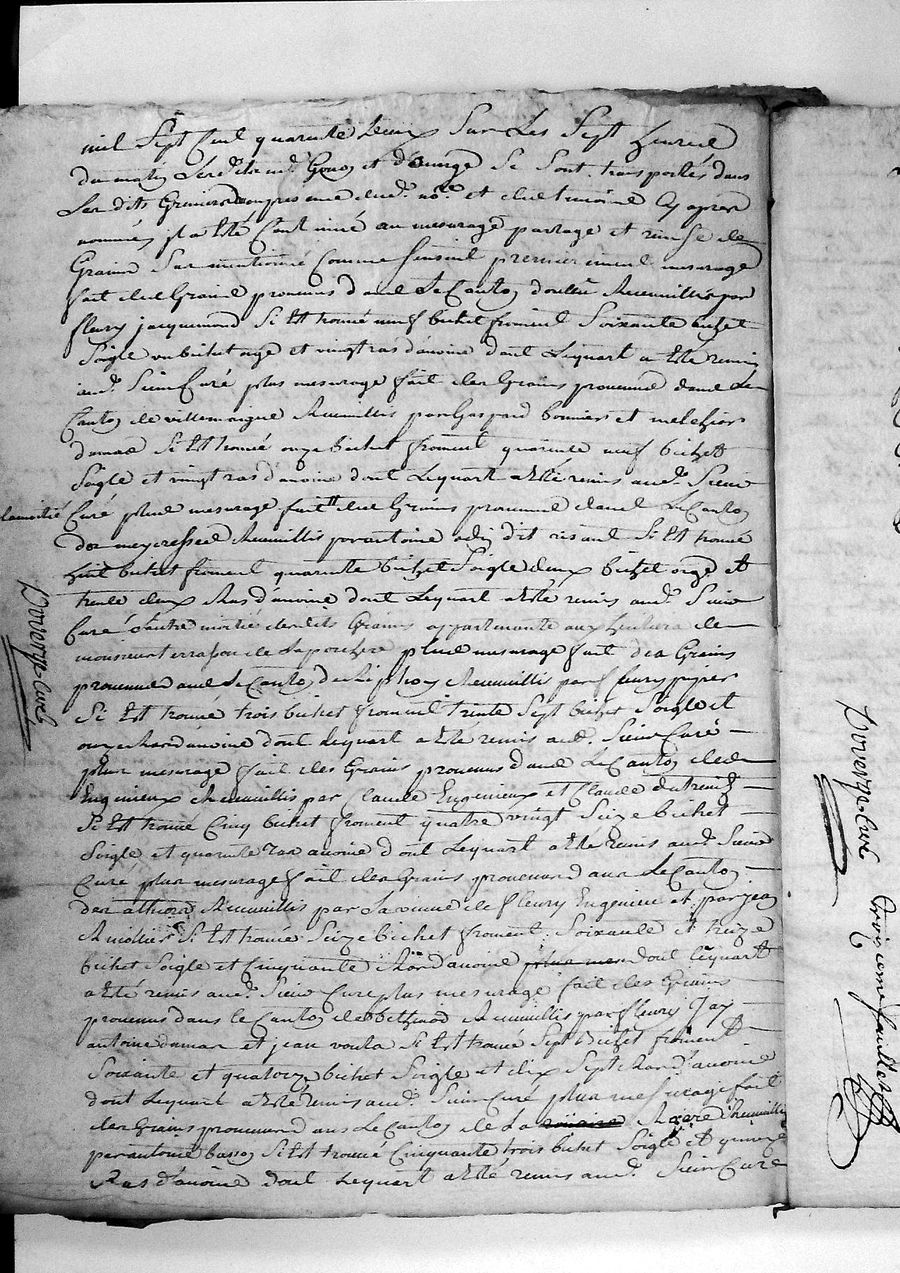 mil Sept Cent quarente deux Sur Les Sept heures
du matin Led. Srs. Gonon et dovierge Se Sont transportés dans
Lesdits Greniers en presence dud. no.re et des temoins Cy apres
nommés jl a Eté Continué au mesurage partage et remise des
Grains Sus mentionné Comme Sensuit premierement mesurage
fait des Grains provenus dans Le Canton doullin Recueillis par
fleury jacquemond Si Est trouvé neuf bichet froment Soixante bichet
Soigle un bichet orge et vingt ras davoine dont Lequart a Eté remis
aud. Sieur Curé plus mesurage fait des Grains provenus dans Le
Canton de villemagne Recueillis par Gaspard bonnier et melchior
damas Si Est trouvé onze bichet froment quarente neuf bichet
Soigle et vingt ras davoine dont Lequart a Eté remis aud. Sieur
lamoitié Curé plus mesurage fait des Grains provenus dans Le Canton
de meycressed Recueillis par antoine dit Si Est trouvé
huit bichet froment quarente bichet Soigle deux bichet orge et
trente deux Ras davoine dont Lequart a Eté remis aud. Sieur
Curé Lautre moitié desdits Grains appartenante aux
monsieur terrasson de Laporchere plus mesurage fait des Grains
provenus dans Le Canton de Recueillis par fleury
Si Est trouvé trois bichet froment trente Sept bichet Soigle et
onze Ras davoine dont Lequart a Eté remis aud. Sieur Curé
plus mesurage fait des Grains provenus dans Le Canton des
Eugenieux Recueillis par Claude Eugenieux et Claude dutreuil
Si Est trouvé Cinq bichet froment quatre vingt Seize bichet
Soigle et quarente ras avoine dont Lequart a Eté remis aud. Sieur
Curé plus mesurage fait des Grains provenus dans Le Canton
des Recueillis par La veuve de fleury Eugenieu et par jean
Si Est trouvé Seize bichet froment Soixante et treize
bichet Soigle et Cinquante Ras davoine plus mes dont Lequart
a Eté remis aud. Sieur Curé plus mesurage fait des Grains
provenus dans le Canton de Recueillis par fleury
antoine damas et jean Si Est trouvé Sept bichet froment
Soixante et quatorze bichet Soigle et dix Sept Ras davoine
dont Lequart a Eté remis aud. Sieur Curé plus mesurage fait
des Grains provenus dans Le Canton de La Recueillis
par antoine Si Est trouvé Cinquante trois bichet Soigle et quinze
Ras davoine dont Lequart a Eté remis aud. Sieur Curé
Dovierge Curé
Dovierge Curé
troisieme feuillet